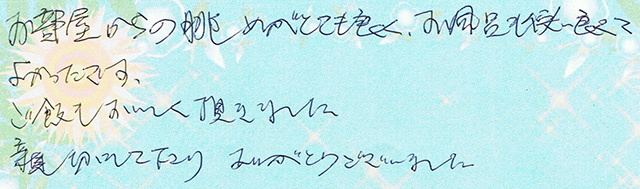 お部屋からの眺めがとても良く、お風呂も使い良くて
よかったです。
ご飯もおいしく頂きました
親切にして下さり ありがとうございました